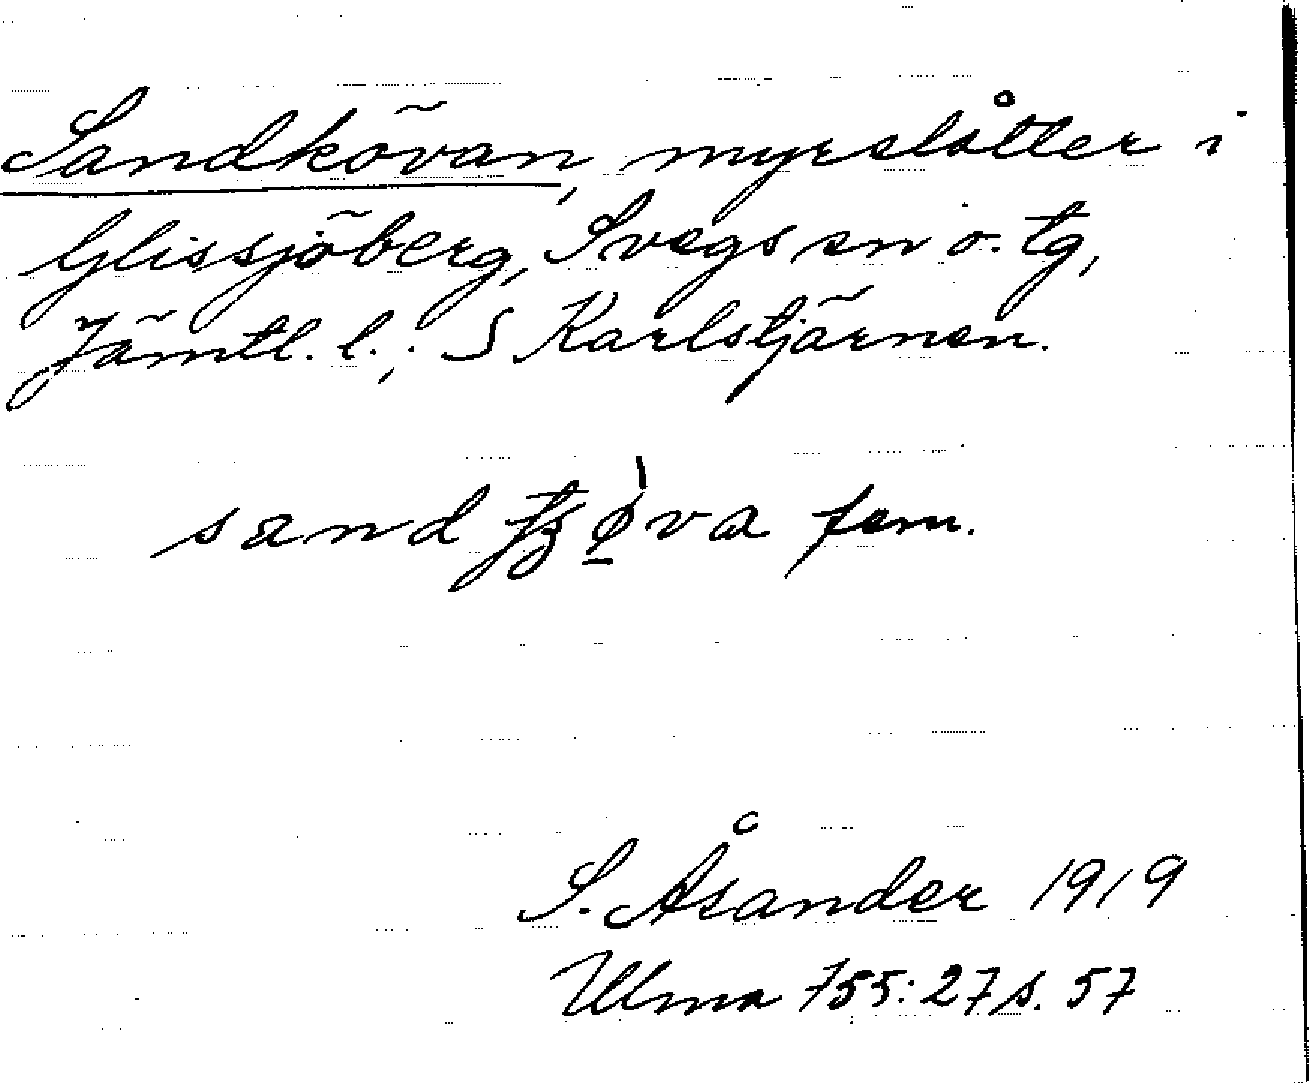 Sandkövan, myrslåtter i
Glissjöberg, Svegs sn o. tg,
Jämtl. l.; S Karlstjärnen.
sandtʒø̠̀va fem.
S. Åsander 1919
Ulma 755:27 s. 57